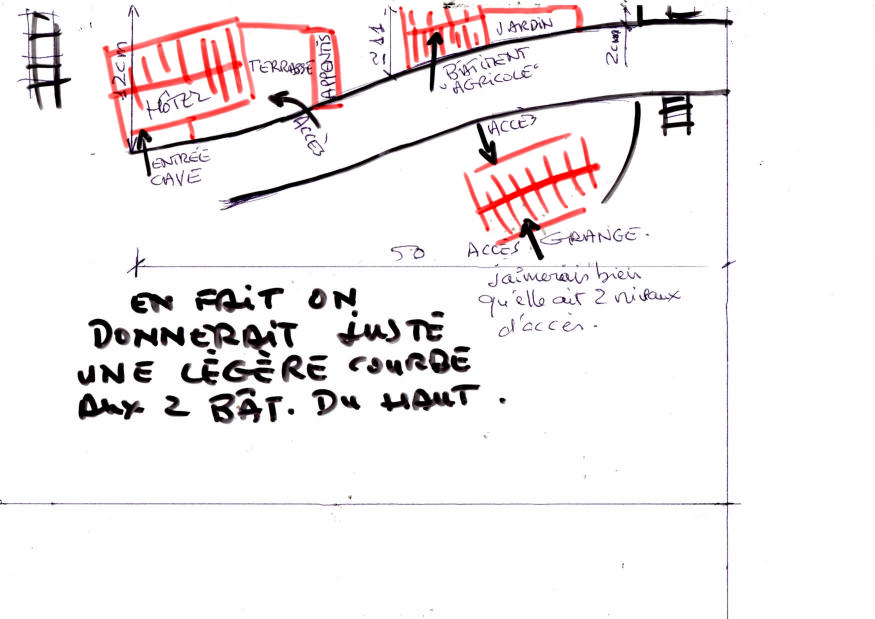 12cm
HÔTEL
TERRASSE
APPENTIS
ACCÈS
ENTRÉE
CAVE
JARDIN
BÂTIMENT
"AGRICOLE"
2cm
ACCÈS
ACCÈS
GRANGE.
50
j'aimerais bien
qu'elle ait 2 niveaux
d'accès.
EN FAIT ON
DONNERAIT JUSTE
UNE LÉGÈRE COURBE
AUX 2 BÂT. DU HAUT.